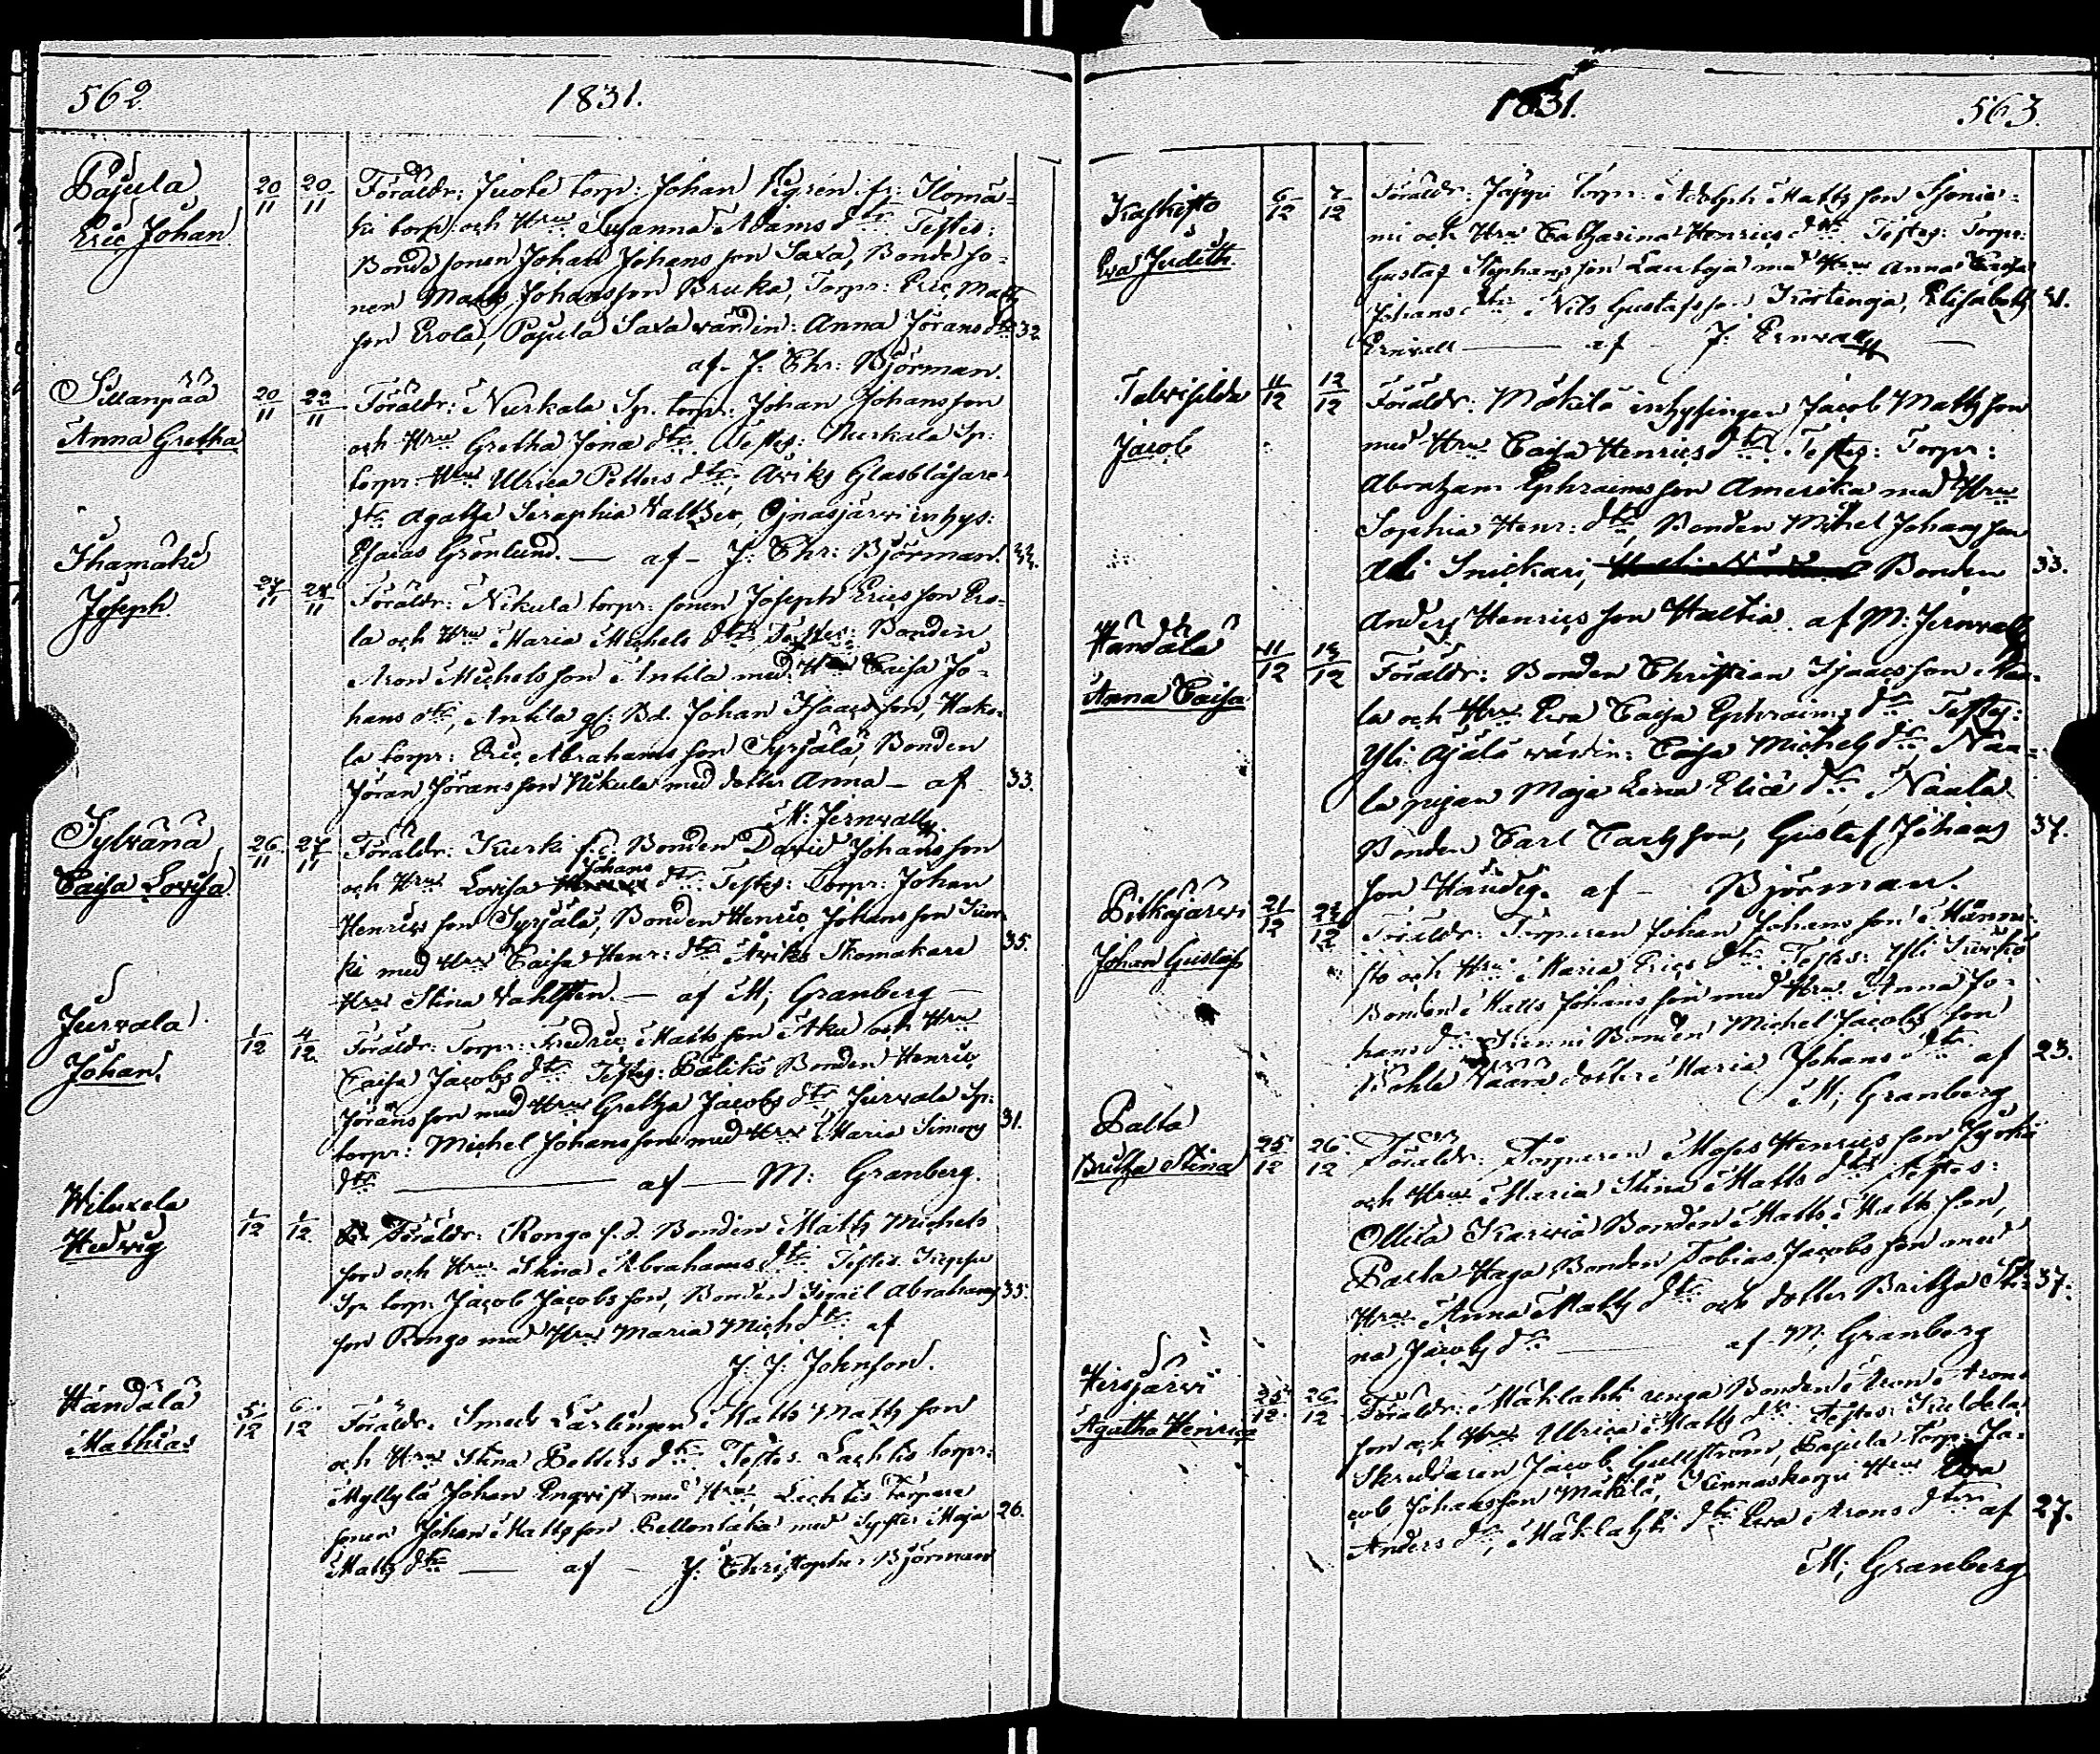 562. 1831.
Pajula
Eric Johan
20/11 20/11
Föräldr: Juote torp: Johan Vigren fr: Ilomä-
ki torp: och Hru Susanna Adams dtr. Testes:
Bonde sonen Johan Johans son Saxa, Bonde so-
nen Matts Johansson Bruka, Torpr: Eric Matts
son Erola, Pajula Saxa värdin: Anna Jörans dtr 32.
af J. Chr: Björman.
Sillanpää
Anna Gretha
20/11 22/11
Föräldr: Nurkala Sp. torpr: Johan Johansson
och Hru Gretha Jonæ dtr. Testes: Nurkala Sp:
torpr: Hru Ulrica Petters dtr, Åviks Glasblåsare
dtr Agatha Seraphia Walther, Ojnasjärvi inhys:
Esaias Grönlund. — af — J: Chr: Björman.
Ihamäki
Joseph
27/11 28/11
Föräldr: Nikula torpr: sonen Joseph Ericsson Ero-
la och Hru Maria Michels dtr Testes: Bonden
Aron Michelsson Antila med Hru Caisa Jo-
hans dtr, Antila gl: Bd. Johan Isaacsson, Hako-
la torpr: Eric Abrahamsson Syrjälä, Bonden
Jöran Jöransson Nikula med dotter Anna — af 33.
M: Jernvall
Sylvänä
Caisa Lovisa
26/11 27/11
Föräldr: Kurki f.d. Bonden David Johansson
och Hru Lovisa Johans dtr. Testes: Torpr: Johan
Henricsson Syrjälä, Bonden Henric Johansson Kur-
ki med Hru Caisa Henr: dtr Åviks Skomakare 35.
Hru Stina Vahlsten. — af M; Granberg —
Jurvala
Johan
1/12 4/12
Föräldr: Torpr: Fredric Matts son Aku och Hru
Caisa Jacobs dtr Testes: Pälikö Bonden Henric
Jöransson med Hru Gretha Jacobs dtr, Jurvala Sp:
torpr: Michel Johansson med Hru Maria Simons 31.
dtr — af — M: Granberg.
Wiluxela
Hedvig
1/12 1/12
Föräldr: Rongo f.d. Bonden Matts Michels
son och Hru Stina Abrahams dtr Testes
Sp torpr: Jacob Jacobsson, Bonden Israel Abrahams 35.
son Rongo med Hru Maria Mich dtr af
J. J. Johnson.
Händälä
Mathias
5/12 6/12
Föräldr: Smeds Lärlingen Matts Mattsson
och Hru Stina Petters dtr. Testes Lachtis torpr:
Myllylä Johan Engvist med Hru, Lechtis Torpare
sonen Johan Mattsson Pellonlaka med Syster Maja 26.
Matts dtr — af — J: Christopher Björman
1831. 563.
Kaskisto
Eva Judith
6/12 7/12
Föräldr: Jäppi Torpr: Adolph Mattsson Sjonie-
mi och Hru Catharina Henrics dtr. Testes: Torpr:
Gustaf Stephansson Lauloja med Hru Anna Caisa
Johans dtr, Nils Gustafsson Kortenoja, Elisabeth 41.
Ernvall — af J. Ernvall
Talvisilda
Jacob
11/12 12/12
Föräldr: Mäkilä inhysingen Jacob Mattsson
med Hru Caisa Henrics dtr. Testes: Torpr:
Abraham Ephraimsson Amerika med Hru
Sophia Henr: dtr, Bonden Michel Johansson
Ali Snickari, Bonden 33.
Anders Henricsson Haltia af M: Jernvall
Händälä
Anna Caisa
11/12 13/12
Föräldr: Bonden Christian Isaacsson Naa-
la och Hru Eva Caisa Ephraims dtr Testes:
Yli Äjälä värdin: Caisa Michels dtr Naa-
la pigan Maja Lena Elice dtr Naala
Bonden Carl Carlsson, Gustaf Johans 37.
son Händig. af — Björman.
Pitkäjärvi
Johan Gustaf
21/12 22/12
Föräldr: Torparen Johan Johansson Männi-
sto och Hru Maria Erics dtr Testes: Yli
Bonden Matts Johansson med Hru Anna Jo-
hans dtr Bonden Michel Jacobsson
Waara dotter Maria Johans dtr af 23.
M; Granberg
Palta
Britha Stina
25/12 26/12
Föräldr: Torparen Moses Henricsson Jyrkö
och Hru Maria Stina Matts dtr Testes:
Ollila Karvia Bonden Matts Mattsson,
Palta Haga Bonden Tobias Jacobsson med
Hru Anna Matts dtr och dotter Britha Sti- 37.
na Jacobs dtr — af M; Granberg
Hirsjärvi
Agatha Henrica
25/12 26/12
Föräldr: Mäklahti unga Bonden Aron Arons
son och Hru Ulrica Matts dtr Testes: Kuldela
Skräddaren Jacob Gullström, Pajula torpr: Ja-
cob Johansson Mäkilä, Hru Eva
Anders dtr, Mäklahti dtr Eva Arons dtr af 27.
M; Granberg